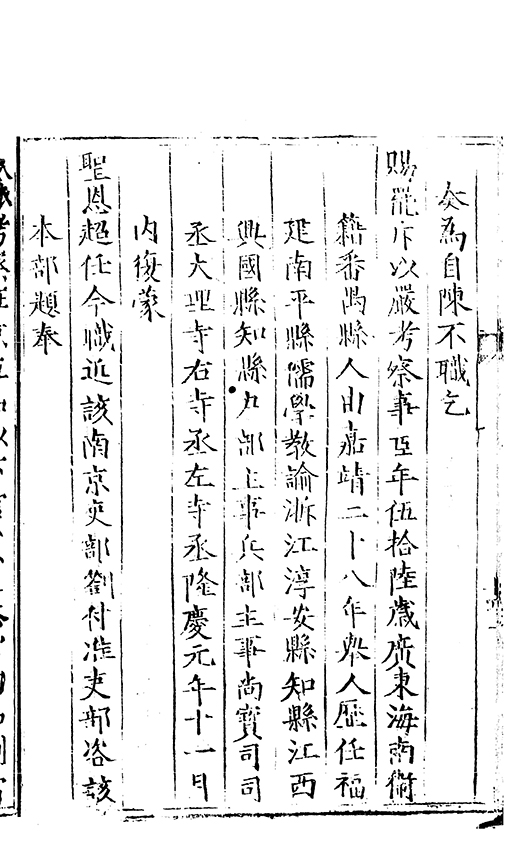 奏為自陳不職乞
賜罷斥以嚴考察事臣年伍拾陸歲廣東海南衛
籍番禺縣人由嘉靖二十八年舉人歷任福
建南平縣儒學教諭浙江淳安縣知縣江西
興國縣知縣户部主事兵部主事尚寶司司
丞大理寺右寺丞左寺丞隆慶元年十一月
内復蒙
聖恩超任今職近該南京吏部劄付准吏部咨該
本部題奉